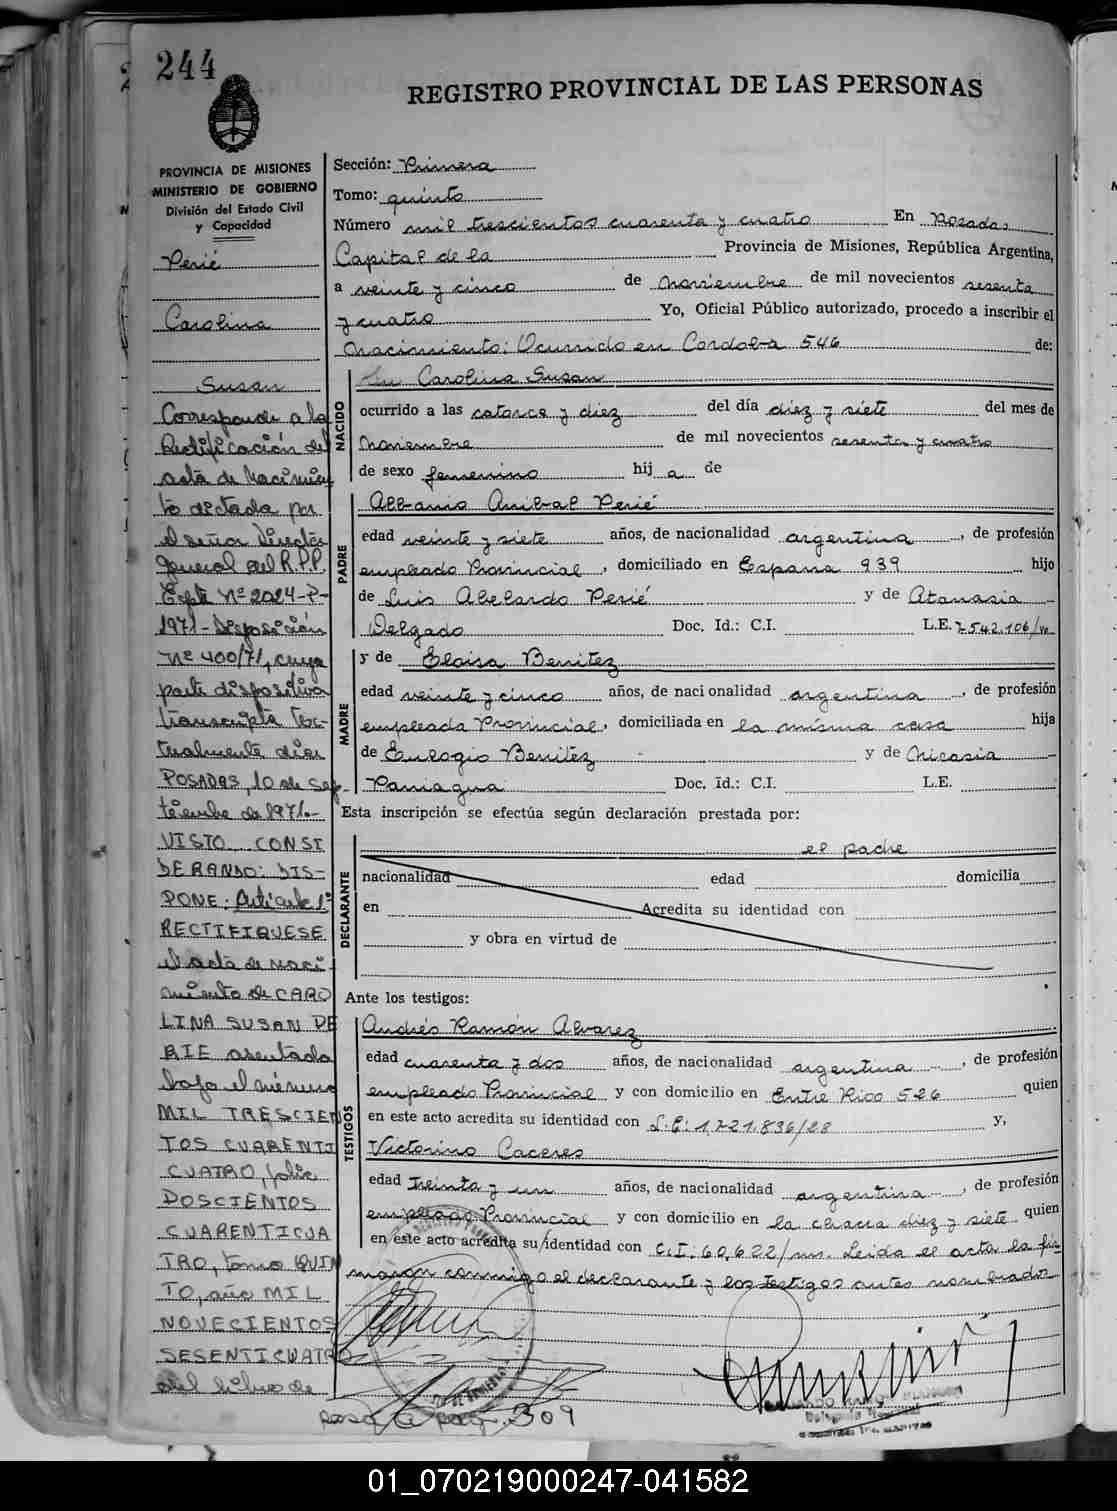 244
REGISTRO PROVINCIAL DE LAS PERSONAS
PROVINCIA DE MISIONES
MINISTERIO DE GOBIERNO
División del Estado Civil
y Capacidad
Perié
Carolina
Susan
Corresponde a la
Rectificación del
acta de Nacimien
to dictada por
el señor Director
General del R.P.P.
Expte Nº 2024-P-
1971- Disposición
Nº 400/71, cuya
parte dispositiva
transcripta tex-
tualmente dice:
POSADAS, 10 de Sep-
tiembre de 1971.-
VISTO CONSI
DERANDO: DIS-
PONE: Artículo 1º
RECTIFIQUESE
el acta de naci-
miento de CARO
LINA SUSAN PE
RIE asentada
bajo el número
MIL TRESCIEN
TOS CUARENTI
CUATRO, folio
DOSCIENTOS
CUARENTICUA
TRO, tomo QUIN
TO, año MIL
NOVECIENTOS
SESENTICUATRO
del libro de
Sección: Primera
Tomo: quinto
Número mil trescientos cuarenta y cuatro En Posadas
Capital de la Provincia de Misiones, República Argentina,
a veinte y cinco de Noviembre de mil novecientos sesenta
y cuatro Yo, Oficial Público autorizado, procedo a inscribir el
Nacimiento: Ocurrido en Cordoba 546 de:
NACIDO
Carolina Susan
ocurrido a las catorce y diez del día diez y siete del mes de
Noviembre de mil novecientos sesenta y cuatro
de sexo femenino hij a de
PADRE
Albanio Anibal Perié
edad veinte y siete años, de nacionalidad argentina, de profesión
empleado Provincial, domiciliado en España 939 hijo
de Luis Abelardo Perié y de Atanasia
Delgado Doc. Id.: C.I. L.E. 7.542.106/
MADRE
y de Eloisa Benitez
edad veinte y cinco años, de nacionalidad argentina, de profesión
empleada Provincial, domiciliada en la misma casa hija
de Eulogio Benitez y de Nicasia
Paniagua Doc. Id.: C.I. L.E.
Esta inscripción se efectúa según declaración prestada por:
DECLARANTE
el padre
nacionalidad edad domicilia
en Acredita su identidad con
y obra en virtud de
Ante los testigos:
TESTIGOS
Andrés Ramón Alvarez
edad cuarenta y dos años, de nacionalidad argentina, de profesión
empleado Provincial y con domicilio en Entre Rios 526 quien
en este acto acredita su identidad con L.E: 1.721.836/28 y,
Victorino Caceres
edad treinta y un años, de nacionalidad argentina, de profesión
empleado Provincial y con domicilio en la chacra diez y siete quien
en este acto acredita su identidad con C.I. 60.622/ms. Leida el acta la fir
maron conmigo el declarante y los testigos antes nombrados
pasa a pag. 309
01_070219000247-041582